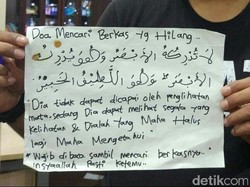 Doa Mencari Berkas Yg Hilang
لَا تُدْرِكُهُ الْأَبْصَارُ وَهُوَ يُدْرِكُ
الْأَبْصَارَ وَهُوَ اللَّطِيفُ الْخَبِيرُ
"Dia tidak dapat dicapai oleh penglihatan
mata, sedang Dia dapat melihat segala yang
kelihatan & Dialah yang Maha Halus
lagi Maha Mengetahui"
* Wajib dibaca sambil mencari berkasnya.
insyaallah Pasti Ketemu..
detikcom